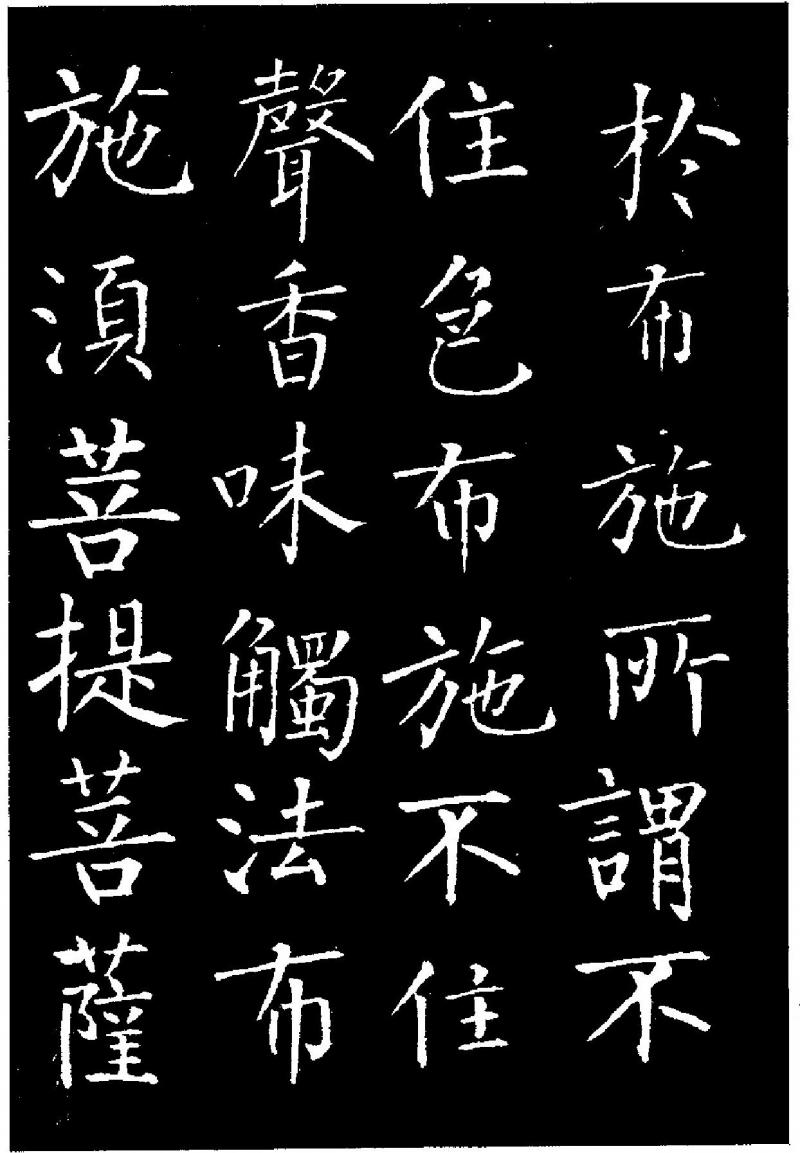 於布施所謂不
住色布施不住
聲香味觸法布
施須菩提菩薩